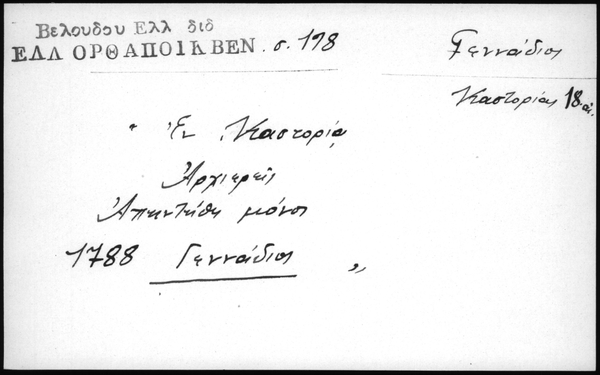 Βελουδου Ελλ διδ
ΕΛΛ ΟΡΘΑΠΟΙΚΒΕΝ. σ. 198
Γεννάδιος
Καστορίας 18 αἰ.
" Ἐν Καστορίᾳ
Ἀρχιερεῖς
Ἀπηντήθη μόνος
1788 Γεννάδιος "